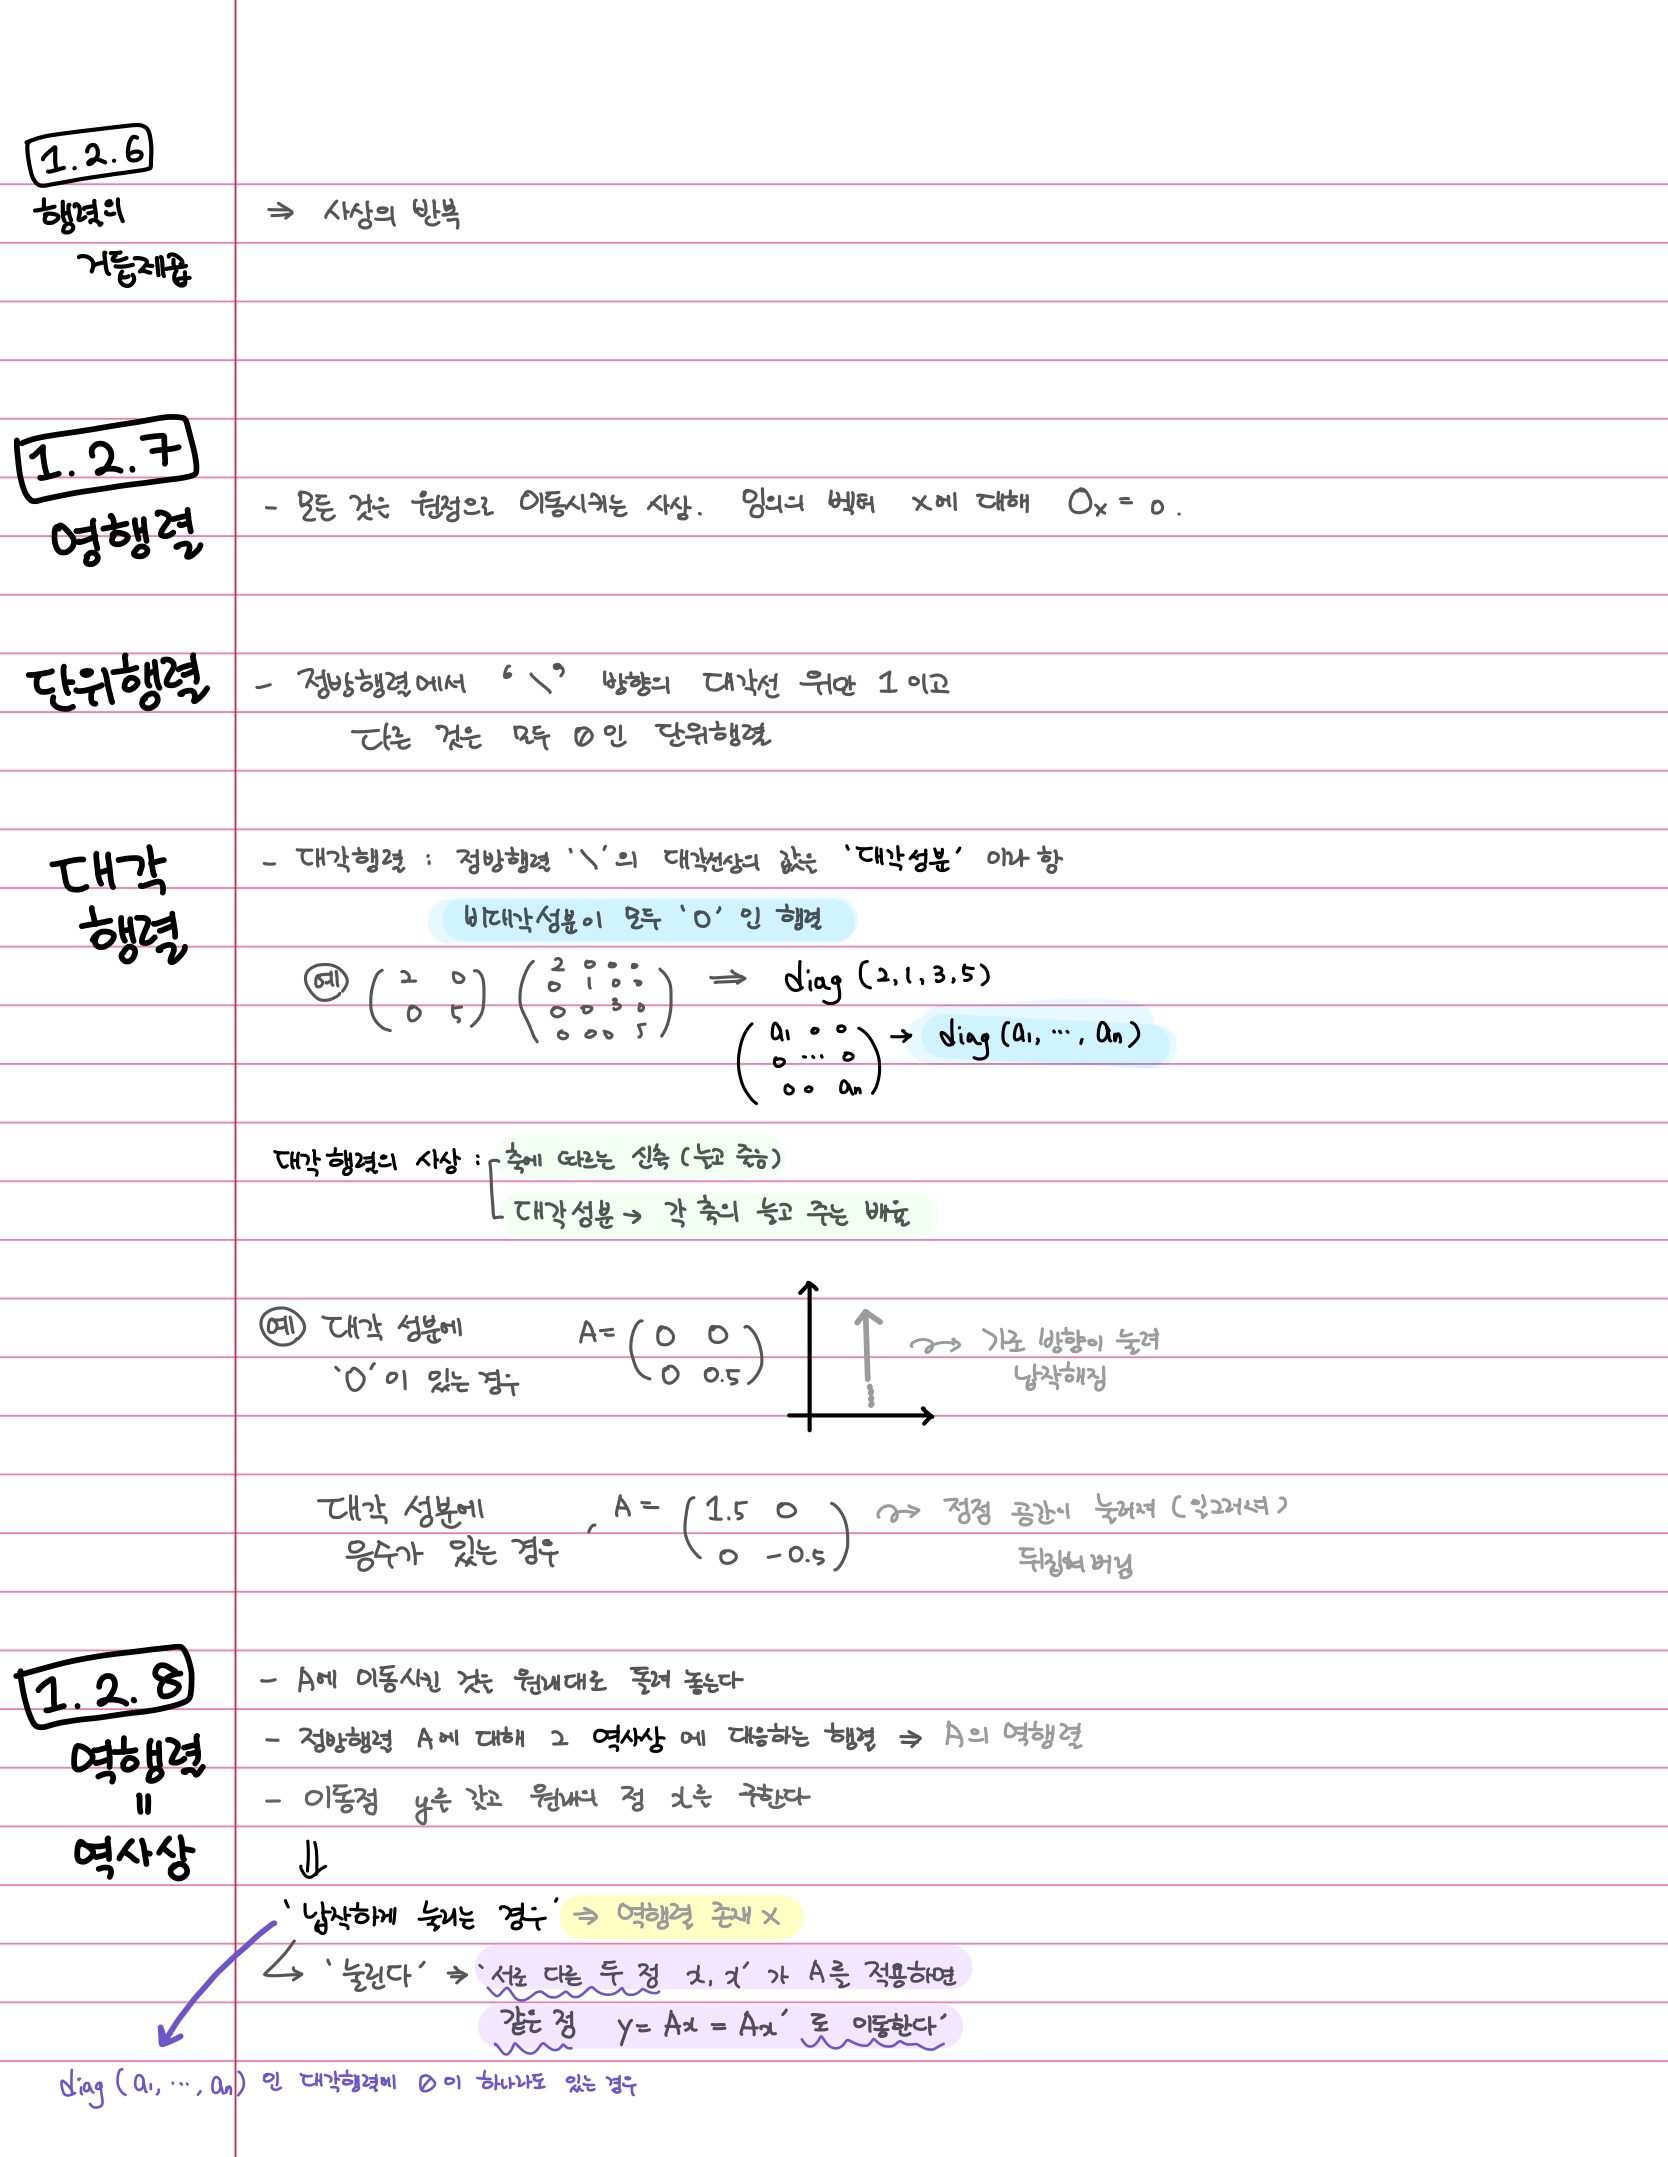 1.2.6
행렬의
거듭제곱
⇒ 사상의 반복
1.2.7
영행렬
- 모든 것은 원점으로 이동시키는 사상. 임의의 벡터 x에 대해 Ox = o.
단위행렬
- 정방행렬에서 ‘ \ ’ 방향의 대각선 위만 1이고
다른 것은 모두 0인 단위행렬
대각
행렬
- 대각행렬 : 정방행렬 '\'의 대각선상의 값은 '대각성분' 이라 함
비대각성분이 모두 '0' 인 행렬
예 ( 2 0 ) ( 2 0 0 0 ) ⇒ diag (2,1,3,5)
( 0 5 ) ( 0 1 0 0 )
( 0 0 3 0 )
( 0 0 0 5 )
( a₁ 0 0 ) → diag (a₁, ⋯, aₙ)
( 0 ⋯ 0 )
( 0 0 aₙ )
대각행렬의 사상 : 축에 따르는 신축 (늘고 줆)
대각성분 → 각 축의 늘고 주는 배율
예 대각 성분에
'0'이 있는 경우
A= ( 0 0 )
( 0 0.5 )
가로 방향이 눌려
납작해짐
대각 성분에
음수가 있는 경우,
A = ( 1.5 0 )
( 0 -0.5 )
점점 공간이 눌려져 (일그러셔)
뒤집혀버림
1.2.8
역행렬
=
역사상
- A에 이동시킨 것은 원래대로 돌려 놓는다
- 정방행렬 A에 대해 그 역사상 에 대응하는 행렬 ⇒ A의 역행렬
- 이동점 y를 갖고 원래의 점 x를 구한다
⇓
'납작하게 눌리는 경우' ⇒ 역행렬 존재 x
'눌린다' ⇒ '서로 다른 두 점 x, x'가 A를 적용하면
같은 점 y= Ax = Ax' 로 이동한다'
diag (a₁, ⋯, aₙ) 인 대각행렬에 0이 하나라도 있는 경우